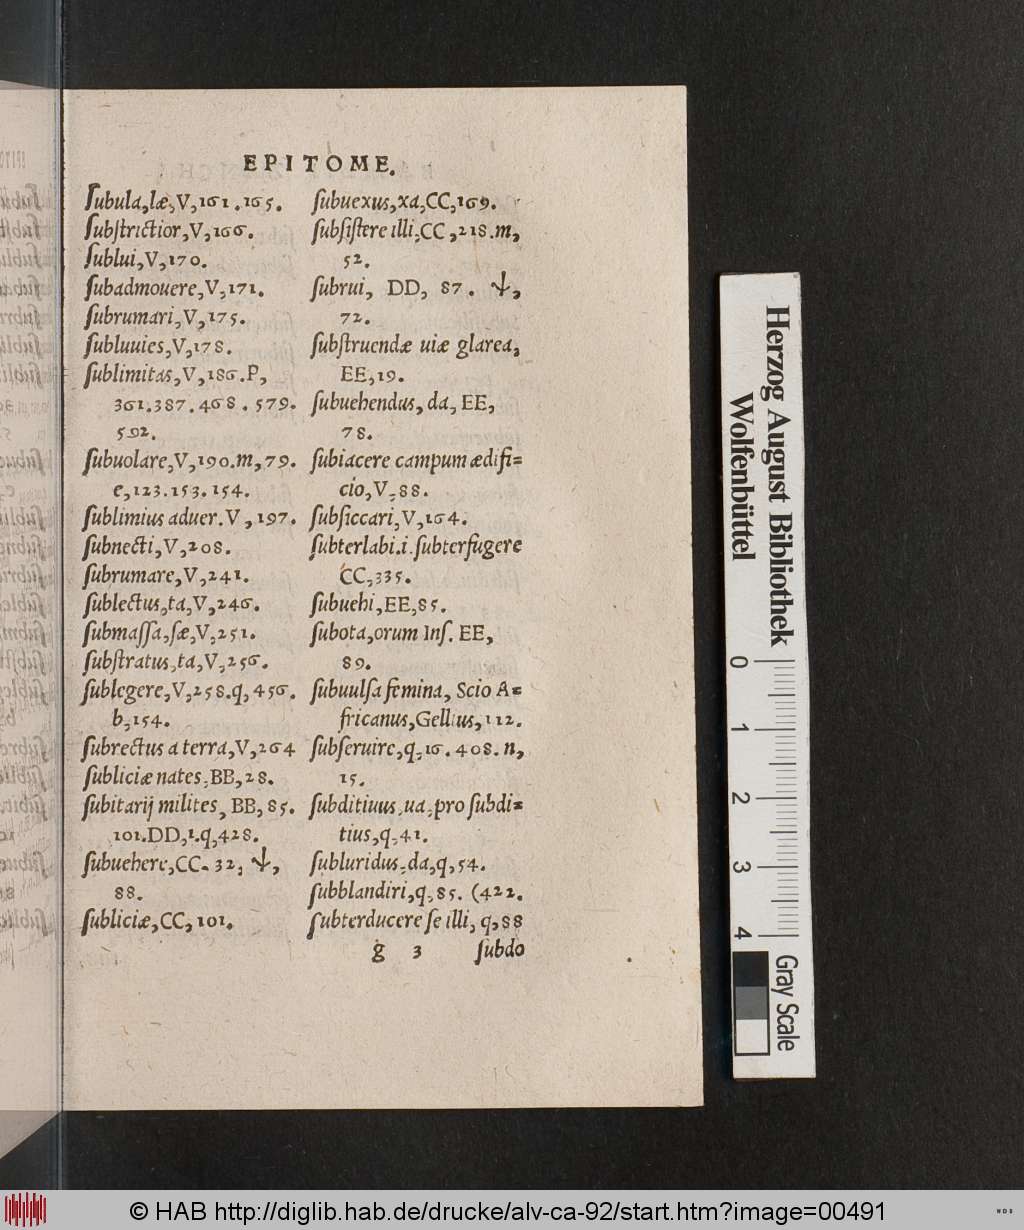 EPITOME.
ſubula,læ,V,161.165.
ſubſtrictior,V,166.
ſublui,V,170.
ſubadmouere,V,171.
ſubrumari,V,175.
ſubluuies,V,178.
ſublimitas,V,186.P,
361.387.468.579.
592.
ſubuolare,V,190.m,79.
e,123.153.154.
ſublimius aduer.V,197.
ſubnecti,V,208.
ſubrumare,V,241.
ſublectus,ta,V,246.
ſubmaſſa,ſæ,V,251.
ſubſtratus,ta,V,256.
ſublegere,V,258.q,456.
b,154.
ſubrectus a terra,V,264
ſubliciæ nates,BB,28.
ſubitarij milites, BB, 85.
101.DD,1.q,428.
ſubuehere,CC.32,
88.
ſubliciæ,CC,101.
ſubuexus,xa,CC,169.
ſubſiſtere illi,CC,218.m,
52.
ſubrui, DD, 87.
72.
ſubſtruendæ uiæ glarea,
EE,19.
ſubuehendus,da,EE,
78.
ſubiacere campum ædifi=
cio,V,88.
ſubſiccari,V,164.
ſubterlabi.i.ſubterfugere
CC,335.
ſubuehi,EE,85.
ſubota,orum Inſ. EE,
89.
ſubuulſa femina, Scio A=
fricanus,Gellius,112.
ſubſeruire,q,16.408.n,
15.
ſubditiuus,ua,pro ſubdi=
tius,q,41.
ſubluridus,da,q,54.
ſubblandiri,q,85. (422.
ſubterducere ſe illi, q,88
g 3 ſubdo
Herzog August Bibliothek
Wolfenbüttel
0 1 2 3 4
Gray Scale
© HAB http://diglib.hab.de/drucke/alv-ca-92/start.htm?image=00491
WDB